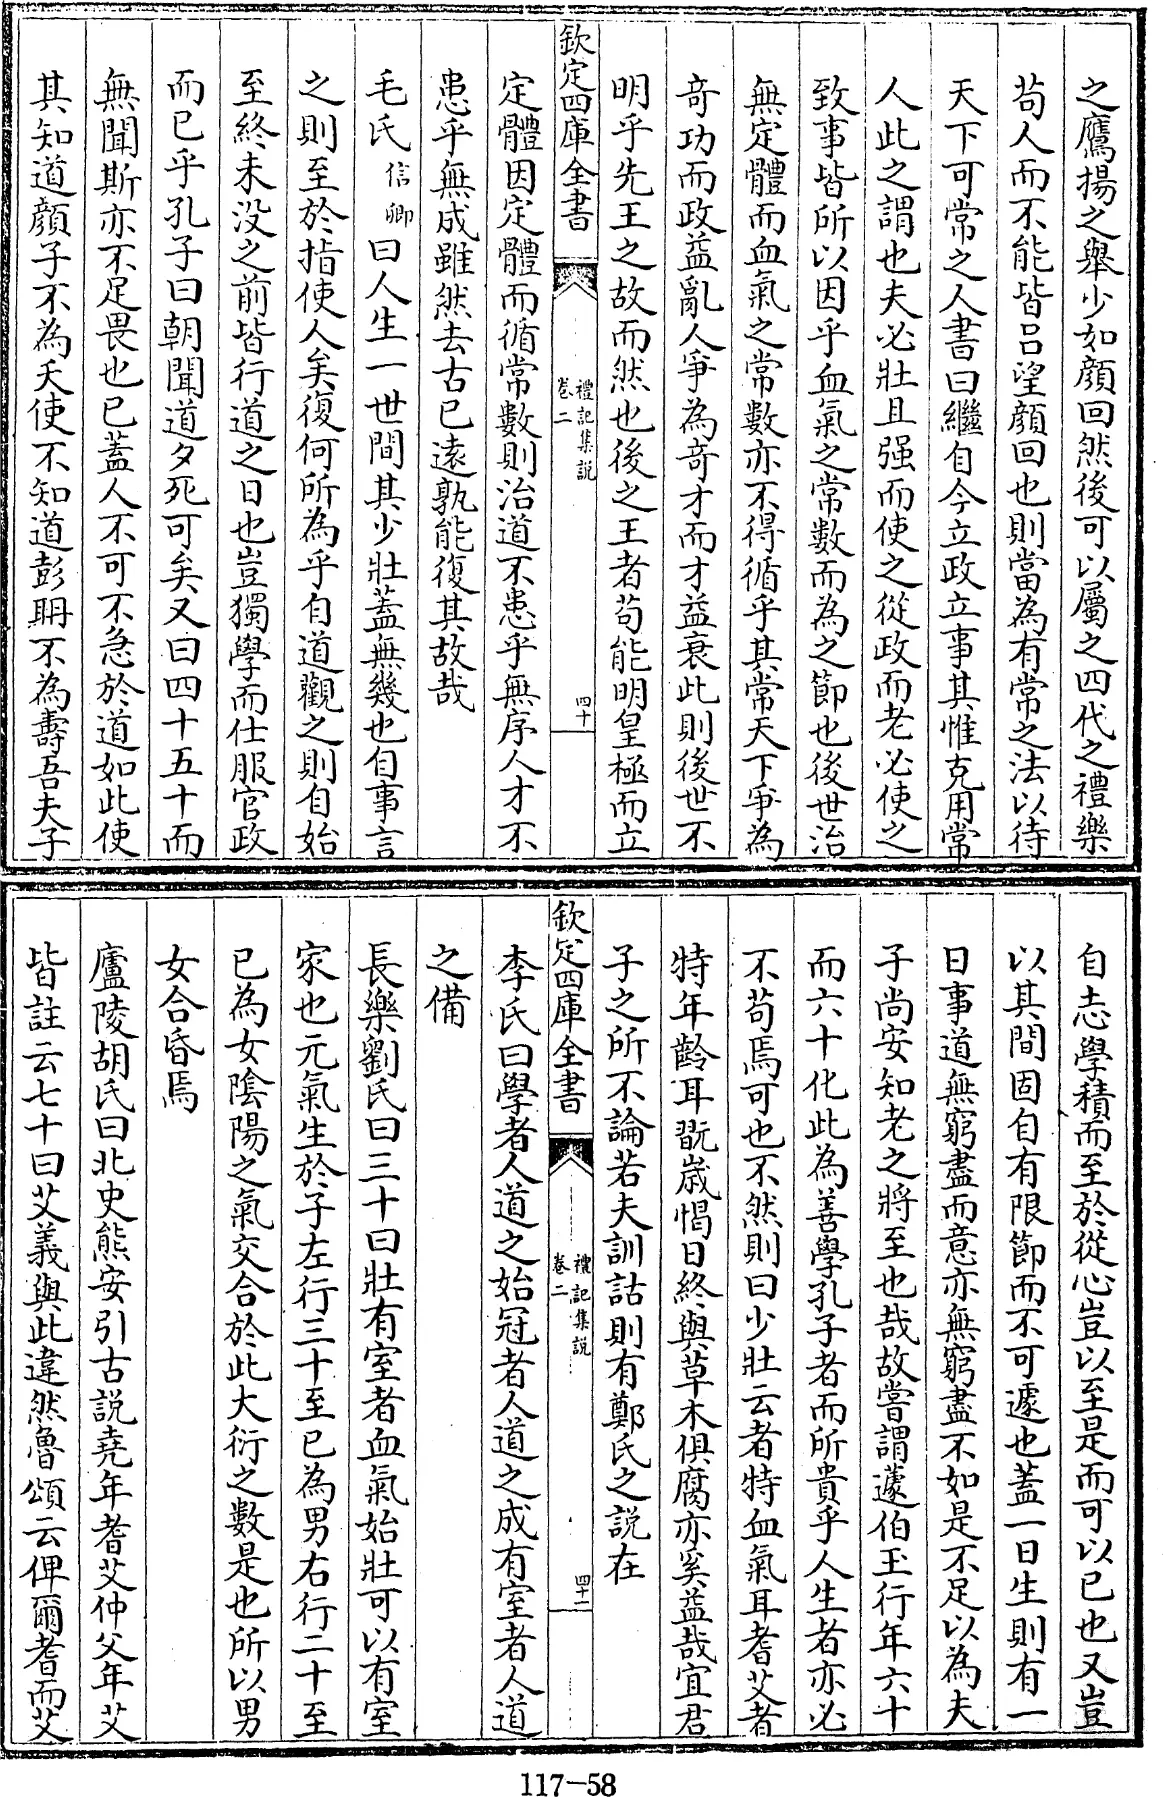 之鷹揚之舉少如顔回然後可以屬之四代之禮樂
茍人而不能皆吕望顔回也則當為有常之法以待
天下可常之人書曰繼自今立政立事其惟克用常
人此之謂也夫必壯且强而使之從政而老必使之
致事皆所以因乎血氣之常數而為之節也後世治
無定體而血氣之常數亦不得循乎其常天下爭為
竒功而政益亂人爭為竒才而才益衰此則後世不
明乎先王之故而然也後之王者茍能明皇極而立
欽定四庫全書
禮記集説
卷二
四十
定體因定體而循常數則治道不患乎無序人才不
患乎無成雖然去古已逺孰能復其故哉
毛氏信卿曰人生一世間其少壯蓋無幾也自事言
之則至於指使人矣復何所為乎自道觀之則自始
至終未没之前皆行道之日也豈獨學而仕服官政
而已乎孔子曰朝聞道夕死可矣又曰四十五十而
無聞斯亦不足畏也已蓋人不可不急於道如此使
其知道顔子不為夭使不知道彭聃不為壽吾夫子
自志學積而至於從心豈以至是而可以已也又豈
以其間固自有限節而不可遽也蓋一日生則有一
日事道無窮盡而意亦無窮盡不如是不足以為夫
子尚安知老之將至也哉故嘗謂蘧伯玉行年六十
而六十化此為善學孔子者而所貴乎人生者亦必
不茍焉可也不然則曰少壯云者特血氣耳耆艾者
特年齡耳翫歳愒日終與草木俱腐亦奚益哉宜君
子之所不論若夫訓詁則有鄭氏之説在
欽定四庫全書
禮記集説
卷二
四十一
李氏曰學者人道之始冠者人道之成有室者人道
之備
長樂劉氏曰三十曰壯有室者血氣始壯可以有室
家也元氣生於子左行三十至巳為男右行二十至
巳為女隂陽之氣交合於此大衍之數是也所以男
女合昏焉
廬陵胡氏曰北史熊安引古説堯年耆艾仲父年艾
皆註云七十曰艾義與此違然魯頌云俾爾耆而艾
117-58